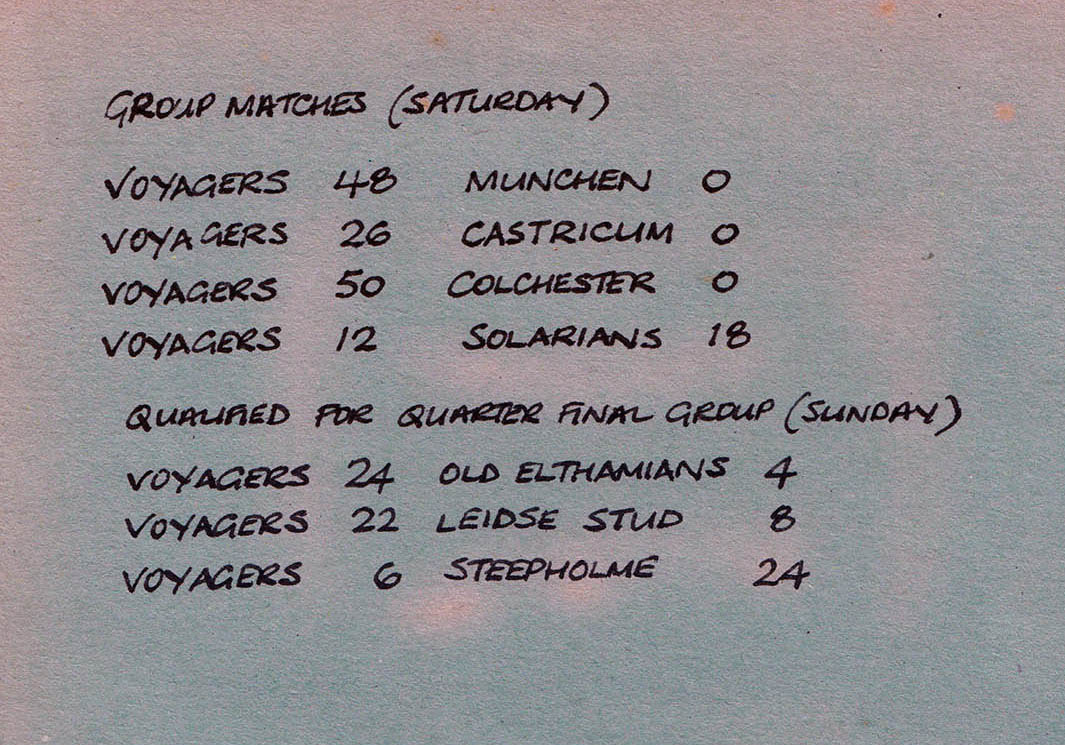 GROUP MATCHES (SATURDAY)
VOYAGERS 48 MUNCHEN 0
VOYAGERS 26 CASTRICUM 0
VOYAGERS 50 COLCHESTER 0
VOYAGERS 12 SOLARIANS 18
QUALIFIED FOR QUARTER FINAL GROUP (SUNDAY)
VOYAGERS 24 OLD ELTHAMIANS 4
VOYAGERS 22 LEIDSE STUD 8
VOYAGERS 6 STEEPHOLME 24